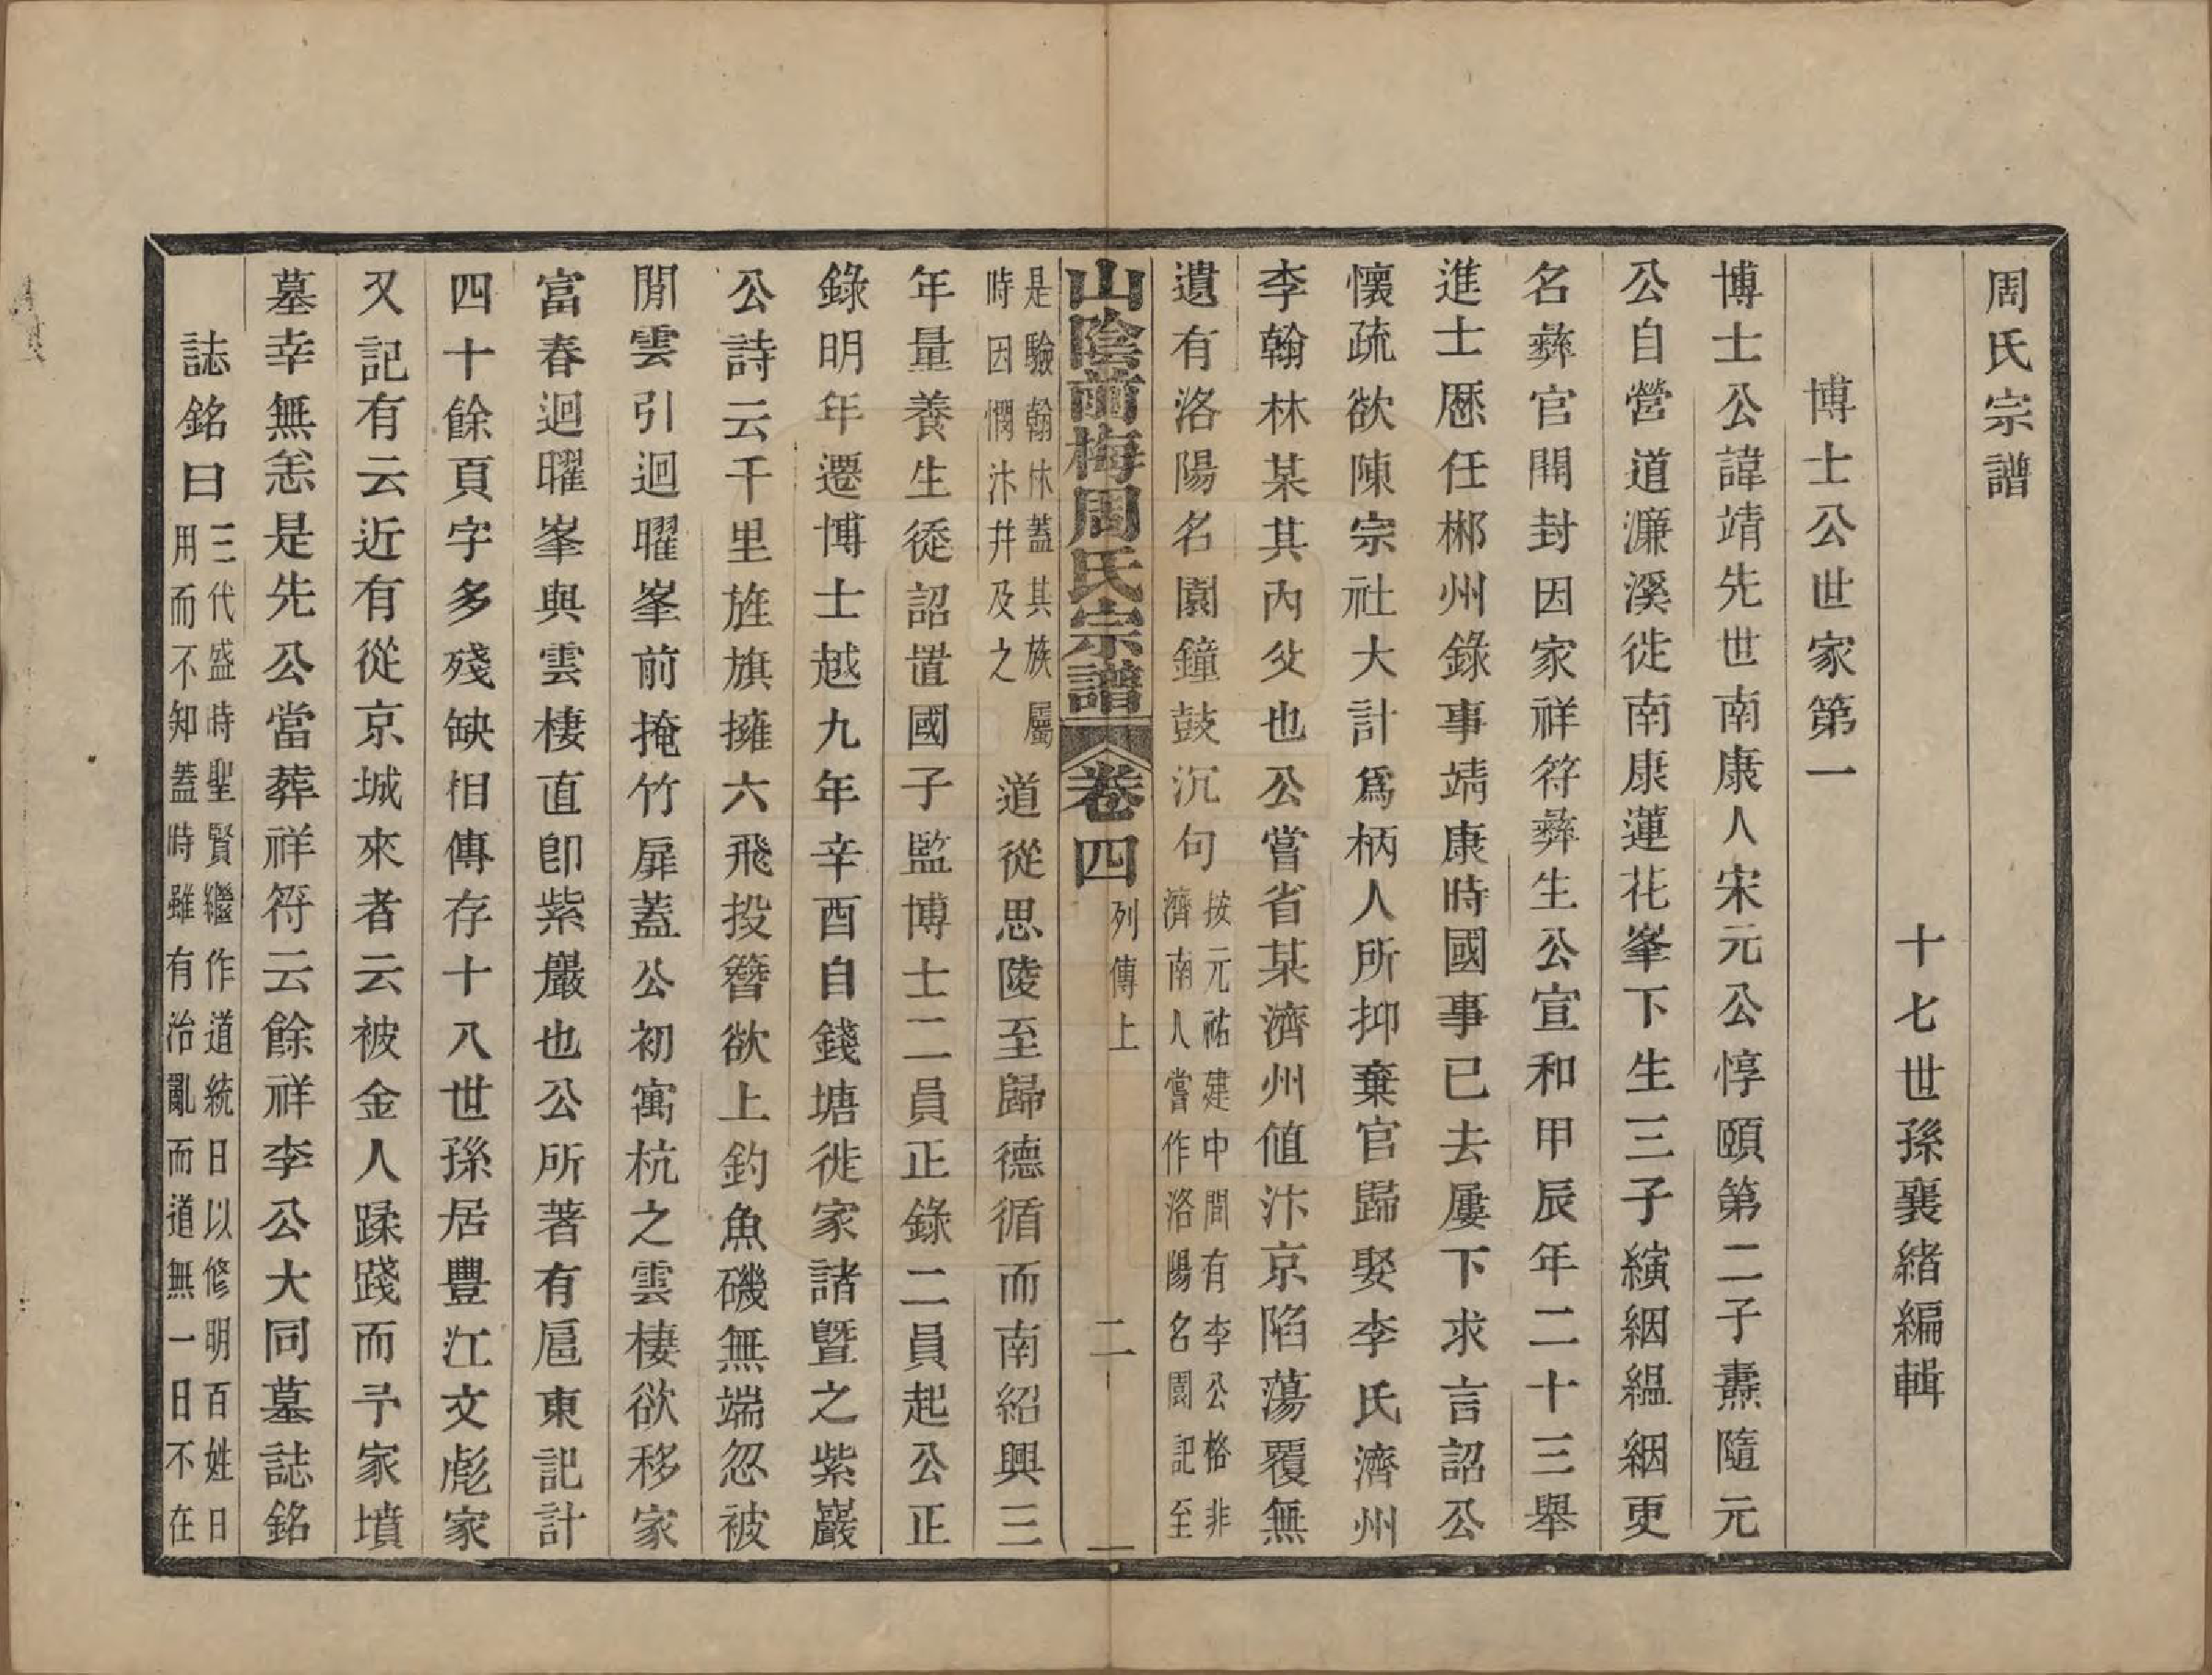 周氏宗譜
十七世孫襄緒編輯
博士公世家第一
博士公諱靖先世南康人宋元公惇頤第二子燾隨元
公自營道濂溪徙南康蓮花峯下生三子縯絪縕絪更
名彝官開封因家祥符彝生公宣和甲辰年二十三舉
進士歷任郴州錄事靖康時國事已去屢下求言詔公
懷疏欲陳宗社大計爲柄人所抑棄官歸娶李氏濟州
李翰林某其內父也公嘗省某濟州値汴京陷蕩覆無
遺有洛陽名園鐘鼓沉句
按元祐建中間有李公格非
濟南人嘗作洛陽名園記至
山陰前梅周氏宗譜 卷四 列傳上 二
是驗翰林蓋其族屬
時因憫汴幷及之
道從思陵至歸德循而南紹興三
年量養生徒詔置國子監博士二員正錄二員起公正
錄明年遷博士越九年辛酉自錢塘徙家諸暨之紫巖
公詩云千里旌旗擁六飛投簪欲上釣魚磯無端忽被
閒雲引迴曜峯前掩竹扉蓋公初寓杭之雲棲欲移家
富春迴曜峯與雲棲直卽紫巖也公所著有扈東記計
四十餘頁字多殘缺相傳存十八世孫居豐江文彪家
又記有云近有從京城來者云被金人蹂踐而予家墳
墓幸無恙是先公當葬祥符云餘祥李公大同墓誌銘
誌銘曰
三代盛時聖賢繼作道統日以修明百姓日
用而不知蓋時雖有治亂而道無一日不在